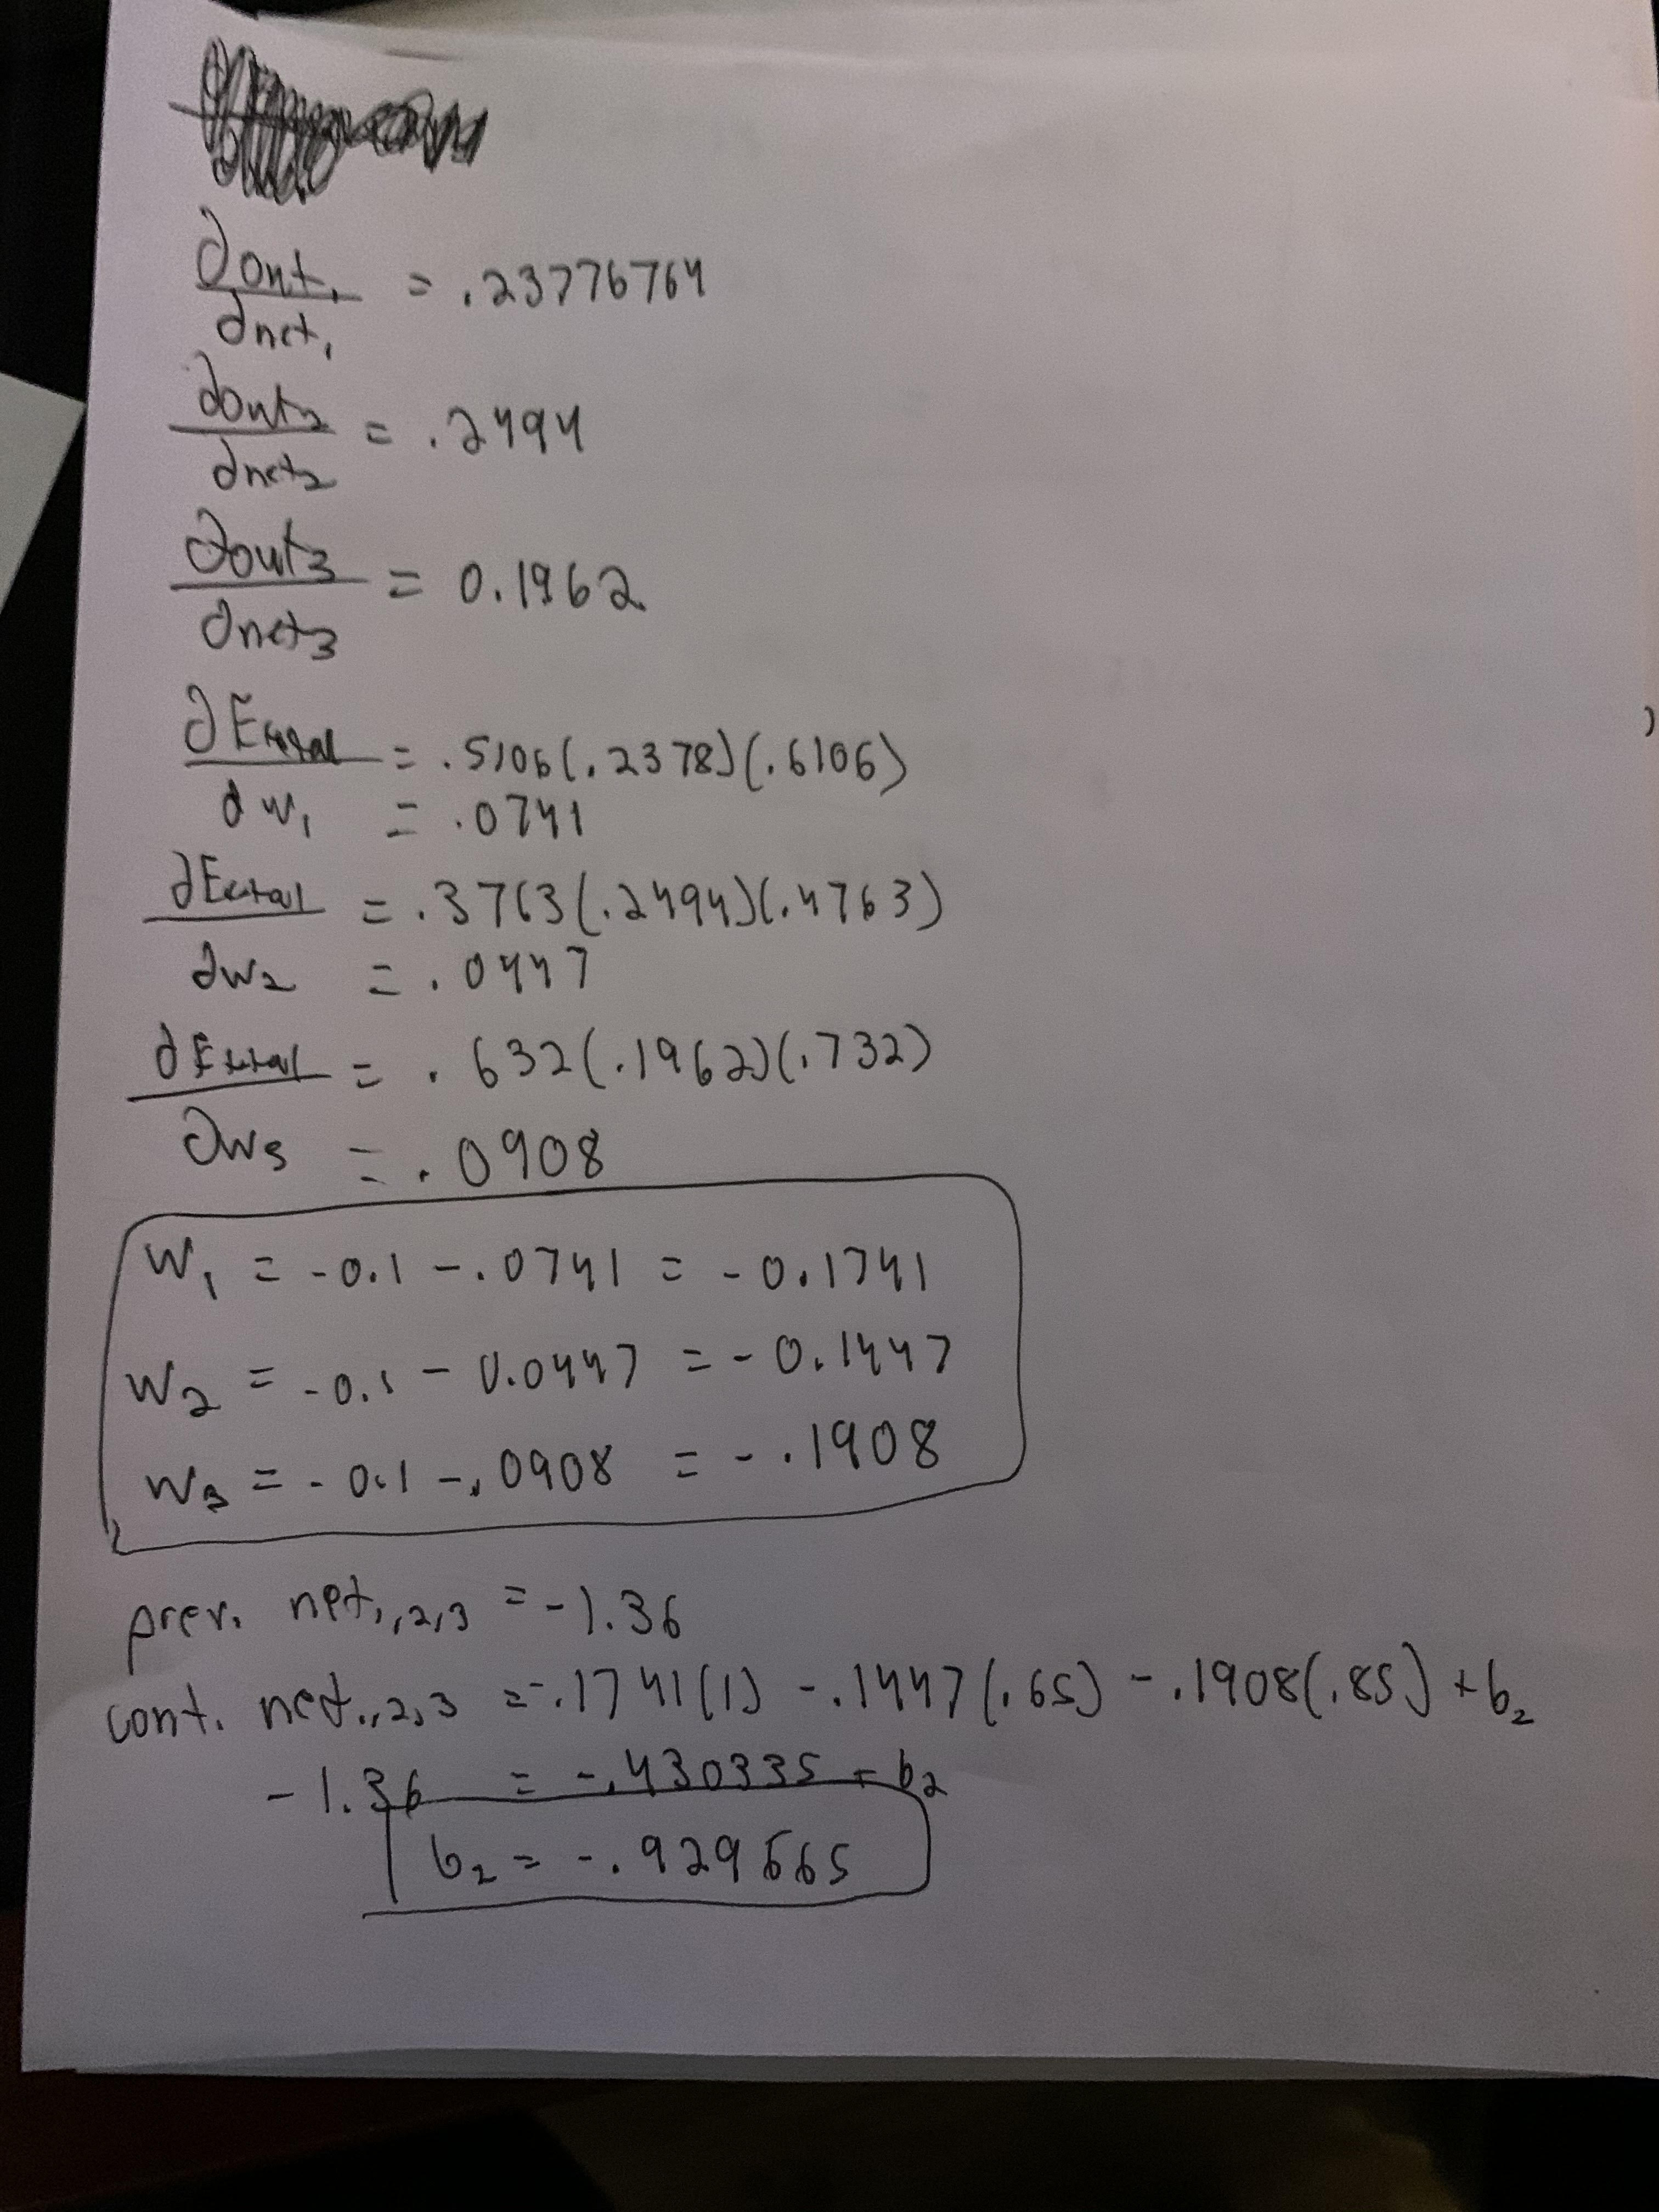 ∂out₁/∂net₁ = .23776764
∂out₂/∂net₂ = .2494
∂out₃/∂net₃ = 0.1962
∂Etotal/∂w₁ = .5106(.2378)(.6106)
= .0741
∂Etotal/∂w₂ = .3763(.2494)(.4763)
= .0447
∂Etotal/∂w₃ = .632(.1962)(.732)
= .0908
w₁ = -0.1 - .0741 = -0.1741
w₂ = -0.1 - 0.0447 = -0.1447
w₃ = -0.1 - .0908 = -.1908
prev. net₁,₂,₃ = -1.36
cont. net₁,₂,₃ = -.1741(1) - .1447(.65) - .1908(.85) + b₂
-1.36 = -.430335 + b₂
b₂ = -.929665